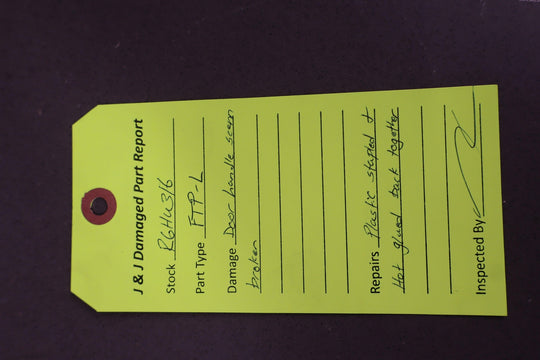 J & J Damaged Part Report
Stock R6HU316
Part Type FTP-L
Damage Door handle screen
broken
Repairs Plastic stapled &
Hot glued back together
Inspected By